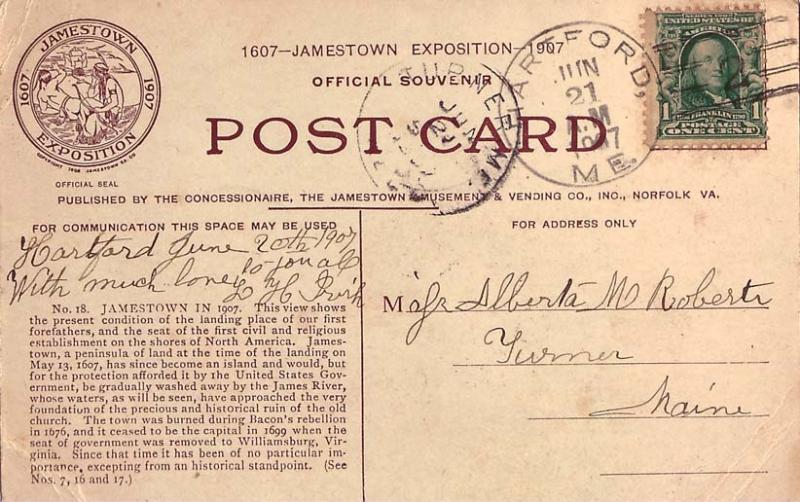 JAMESTOWN
1607
1907
EXPOSITION
OFFICIAL SEAL
1607—JAMESTOWN EXPOSITION—1907
OFFICIAL SOUVENIR
POST CARD
TURNER ME.
JUN
HARTFORD,
JUN
21
M
1907
ME.
SERIES 1902
UNITED STATES OF
AMERICA
1
FRANKLIN
POSTAGE
ONE CENT
PUBLISHED BY THE CONCESSIONAIRE, THE JAMESTOWN AMUSEMENT & VENDING CO., INC., NORFOLK VA.
FOR COMMUNICATION THIS SPACE MAY BE USED
FOR ADDRESS ONLY
Hartford June 20th 1907
With much love to you all
L H Irish
No. 18. JAMESTOWN IN 1907. This view shows
the present condition of the landing place of our first
forefathers, and the seat of the first civil and religious
establishment on the shores of North America. James-
town, a peninsula of land at the time of the landing on
May 13, 1607, has since become an island and would, but
for the protection afforded it by the United States Gov-
ernment, be gradually washed away by the James River,
whose waters, as will be seen, have approached the very
foundation of the precious and historical ruin of the old
church. The town was burned during Bacon's rebellion
in 1676, and it ceased to be the capital in 1699 when the
seat of government was removed to Williamsburg, Vir-
ginia. Since that time it has been of no particular im-
portance, excepting from an historical standpoint. (See
Nos. 7, 16 and 17.)
Alberta M Roberts
Turner
Maine